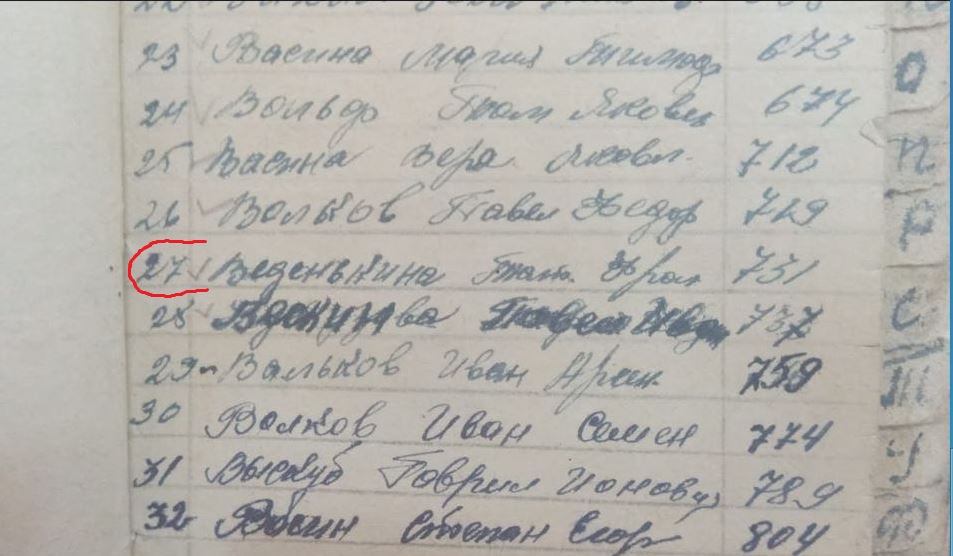 23 Васина Мария Тимофе 673
24 Вольф Яковл 674
25 Васина Вера Яковл. 712
26 Вольков Павел Федор 729
27 Веденькина Фрол 731
28 Иван 737
29 Вальков Иван 759
30 Волков Иван Семен 774
31 Выскуб Гаврил Ионович 789
32 Васин Степан Егор 804
О
П
Р
С
Т
У
Ф